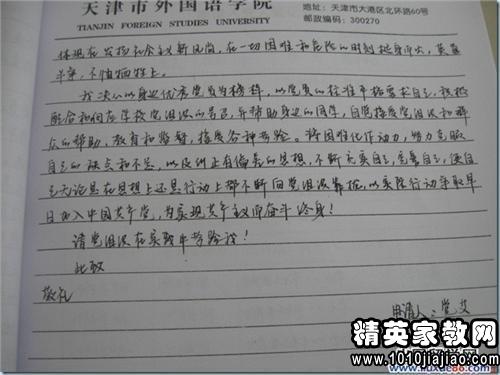 天津市外国语学院
TIANJIN FOREIGN STUDIES UNIVERSITY
地址：天津市大港区北环路60号
邮政编码：300270
体现在发扬社会主义新风尚，在一切困难和危险的时刻挺身而出，英勇
斗争，不怕牺牲上。
我决心以身边优秀党员为榜样，以党员的标准严格要求自己，积极
配合和向在学校党组织的号召，并帮助身边的同学，自觉接受党组织和群
众的帮助、教育和监督，接受各种考验。将困难化作动力，努力克服
自己的缺点和不足，以及纠正有偏差的思想，不断充实自己，完善自己，使自
己无论是在思想上还是行动上都不断向党组织靠拢，以实际行动争取早
日加入中国共产党，为实现共产主义而奋斗终身！
请党组织在实践中考验我！
此致
敬礼
申请人：党艾
精英家教网
www.1010jiajiao.com